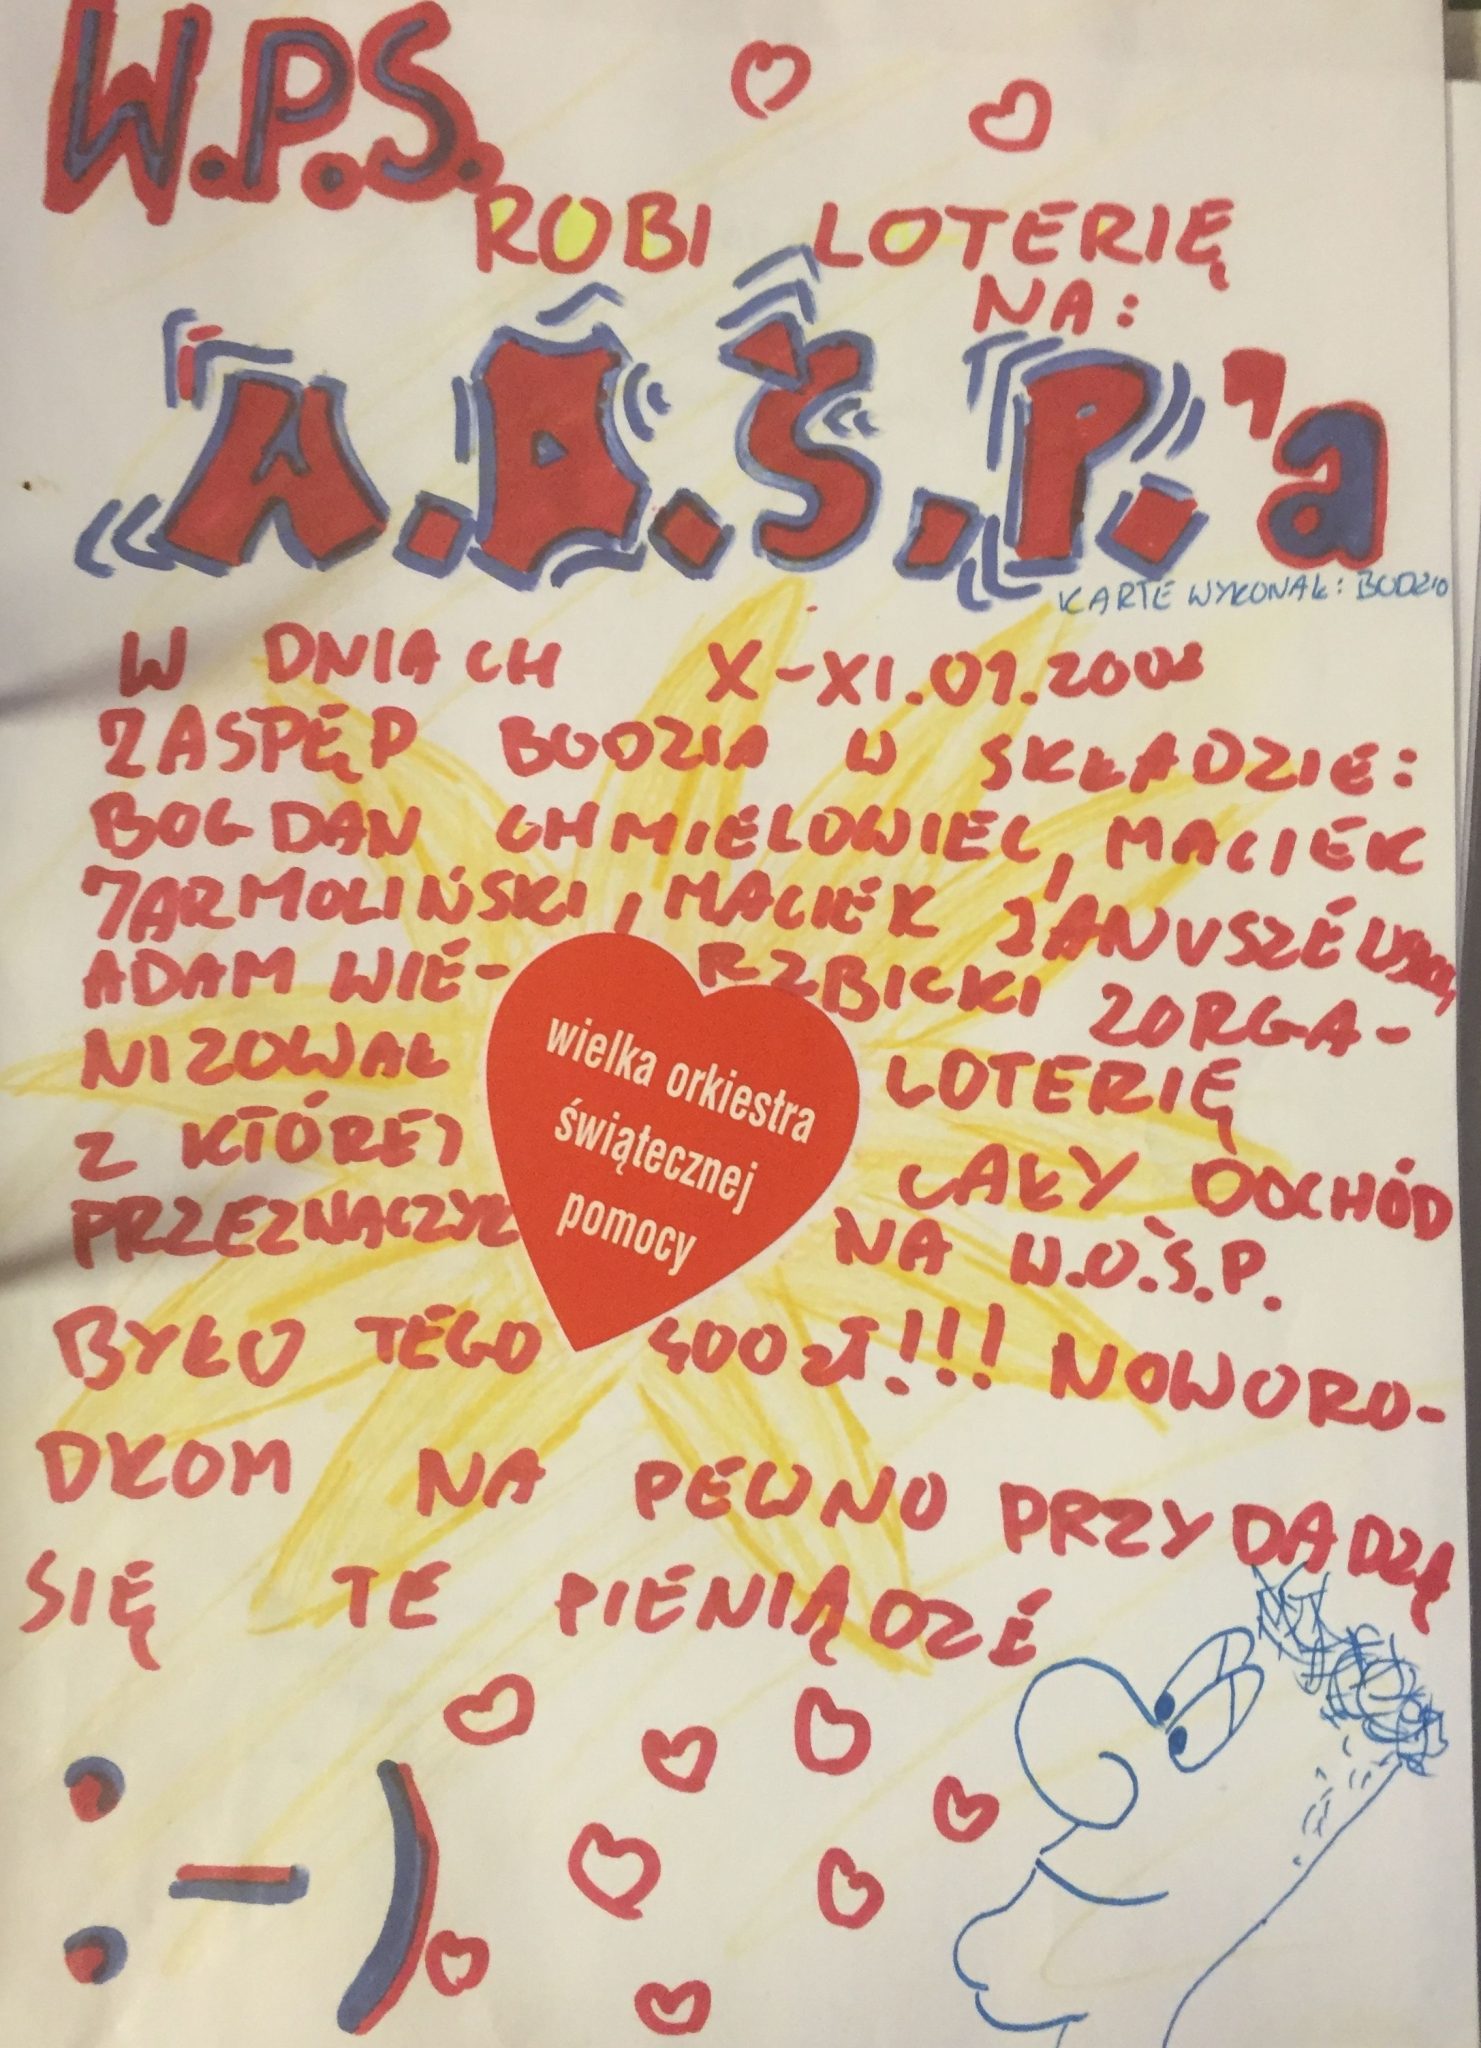 W.P.S.
ROBI LOTERIĘ
NA:
W.O.Ś.P.'a
KARTE WYKONAŁ: BODZIO
W DNIACH X-XI.01.2008
ZASPĘP BODZIA W SKŁADZIE:
BOGDAN CHMIELOWIEC, MACIEK
JARMOLIŃSKI, MACIEK JANUSZEWSKI,
ADAM WIE- RZBICKI ZORGA-
NIZOWAŁ LOTERIĘ
Z KTÓREJ CAŁY DOCHÓD
PRZEZNACZYŁ NA W.O.Ś.P.
BYŁO TEGO 400 zł!!! NOWORO-
DKOM NA PEWNO PRZYDADZĄ
SIĘ TE PIENIĄDZE
wielka orkiestra
świątecznej
pomocy
:-)